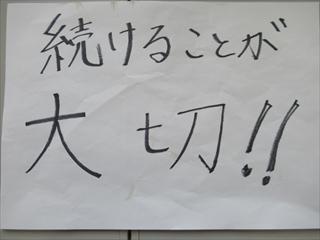 続けることが
大切!!